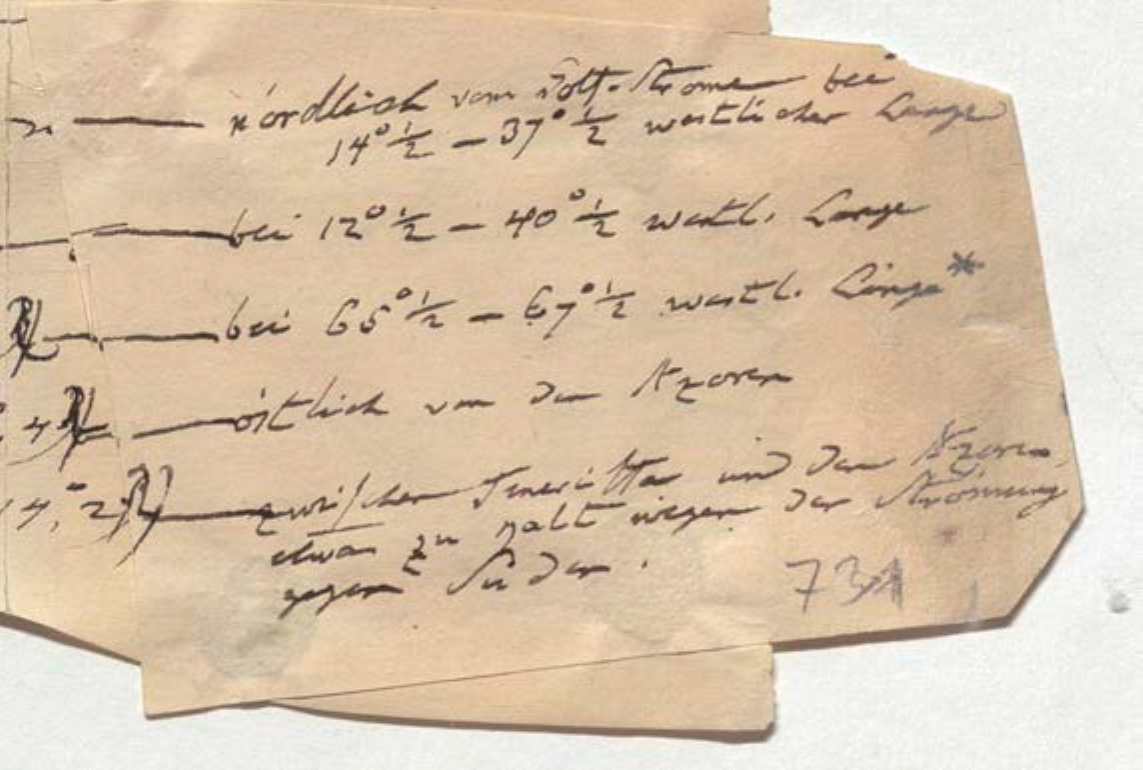 n. — nördlich vom Golf-Strome bei
14° ½ — 37° ½ westlicher Länge
— bei 12° ½ — 40° ½ westl. Länge
— bei 65° ½ — 67° ½ westl. Länge*
4 — östlich von den Azoren
14,°2 — zwischen Teneriffa und den Azoren,
etwas zu kalt wegen der Strömung
gegen Süden.
731